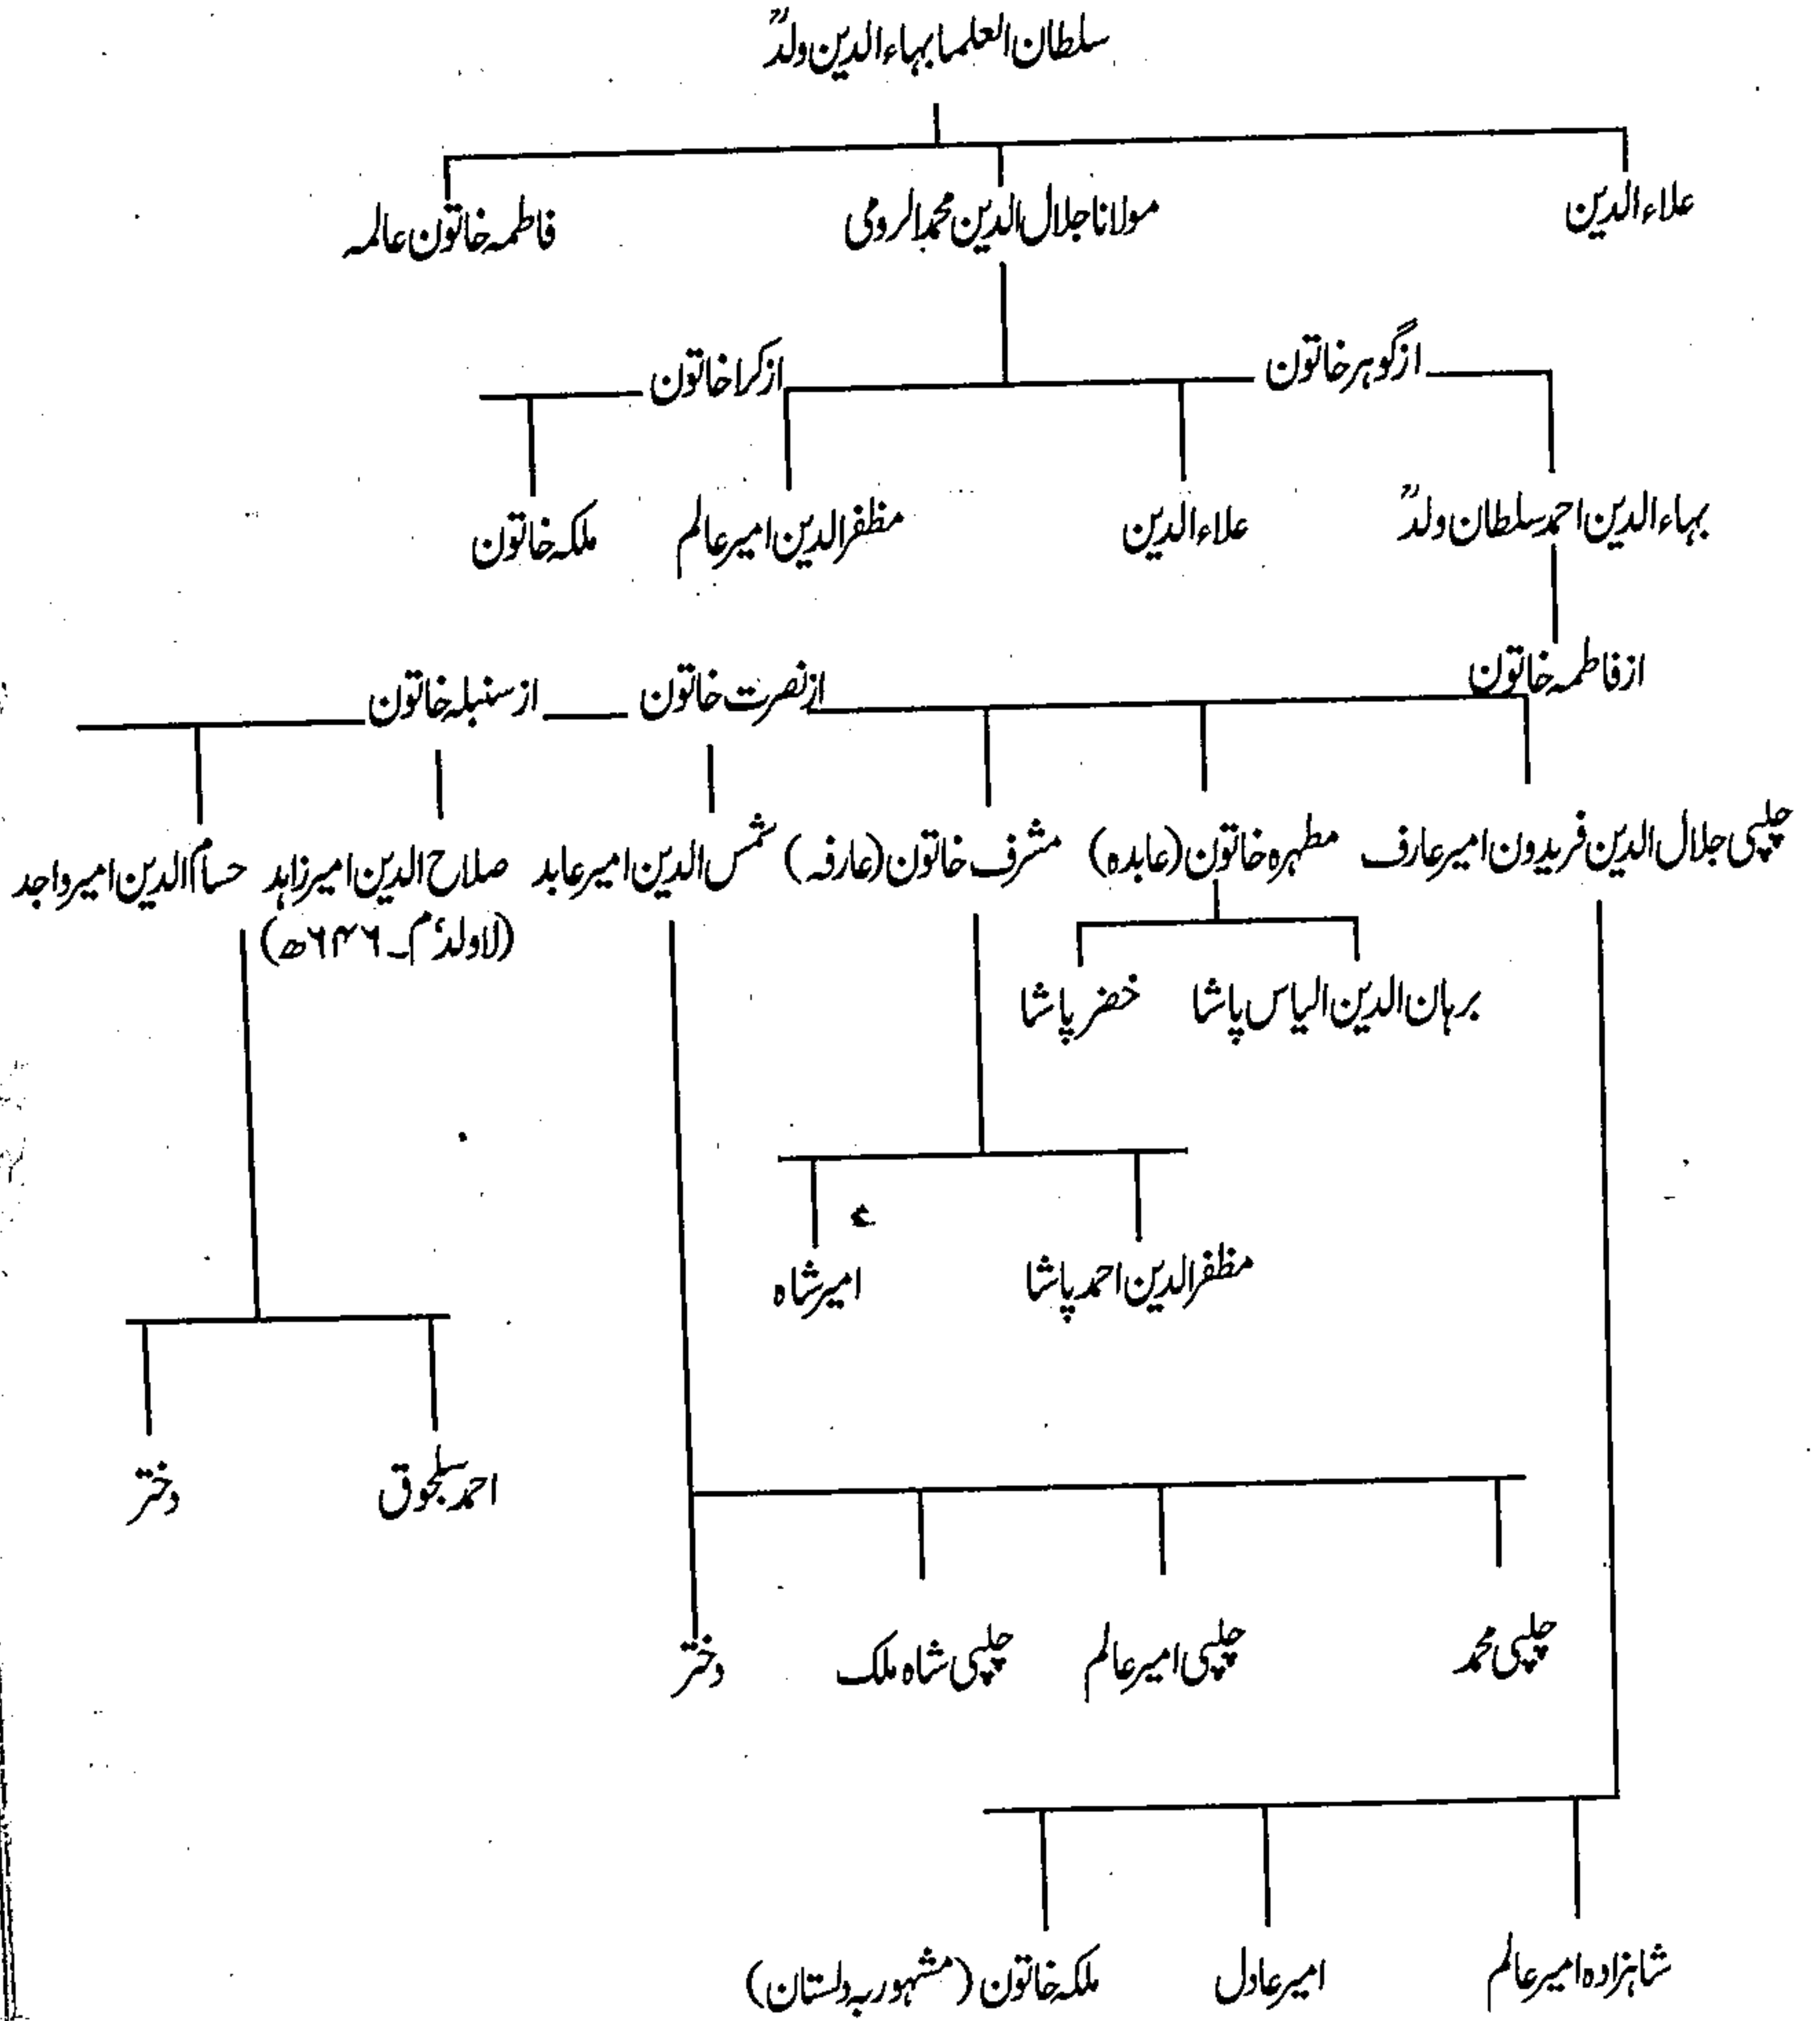 سلطان العلما بہاء الدین ولدؒ
علاء الدین مولانا جلال الدین محمد الرومی فاطمہ خاتون عالمہ
از گوہر خاتون از کرا خاتون
بہاء الدین احمد سلطان ولدؒ علاء الدین مظفر الدین امیر عالم ملکہ خاتون
از فاطمہ خاتون از نصرت خاتون از سنبلہ خاتون
چلپی جلال الدین فریدون امیر عارف مطہرہ خاتون (عابدہ) مشرف خاتون (عارفہ) شمس الدین امیر عابد صلاح الدین امیر زاہد حسام الدین امیر واجد
(لاولد، م۔ ۶۴۶ھ)
برہان الدین الیاس پاشا خضر پاشا
مظفر الدین احمد پاشا امیر شاہ
احمد سلجوق دختر
چلپی محمد چلپی امیر عالم چلپی شاہ ملک دختر
شاہزادہ امیر عالم امیر عادل ملکہ خاتون (مشہور بہ دلستان)